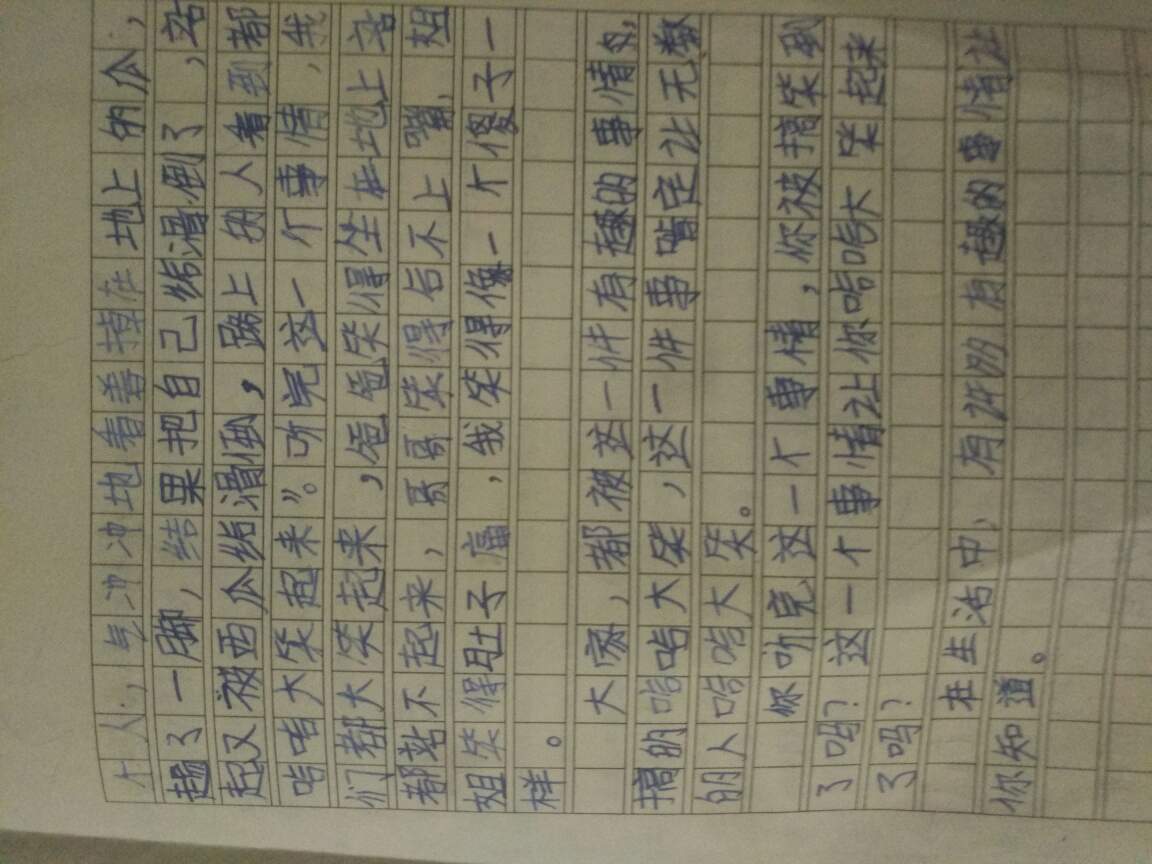 个人，气冲冲地看着掉在地上的瓜，
踢了一脚，结果把自己给滑倒了，站
起又被西瓜给滑倒，路上的人看到都
哈哈大笑起来”。听完这一个事情，我
们都大笑起来，爸爸笑得坐在地上站
都站不起来，哥哥笑得合不上嘴，姐
姐笑得肚子痛，我笑得像一个傻子一
样。
大家，都被这一件有趣的事情
搞的哈哈大笑，这一件事啃定让无数
的人哈哈大笑。
你听完这一个事情，你被搞笑到
了吗？这一个事情让你哈哈大笑起来
了吗？
在生活中，有许多有趣的事情让
你知道。